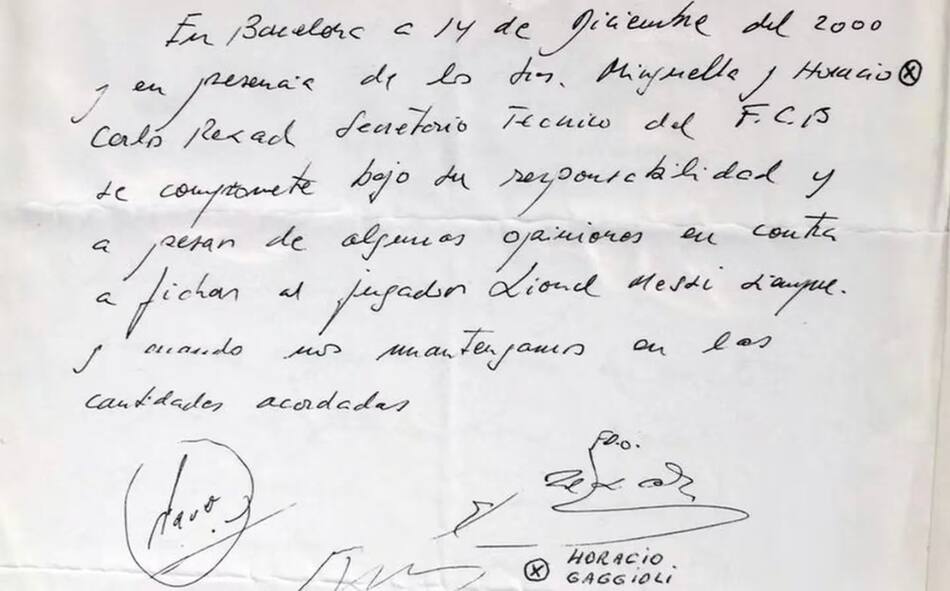 En Barcelona a 14 de Diciembre del 2000
y en presencia de los Srs. Minguella y Horacio ⓧ
Carlos Rexach Secretario Tecnico del F.C.B
se compromete bajo su responsabilidad y
a pesar de algunas opiniones en contra
a fichar al jugador Lionel Messi siempre
y cuando nos mantengamos en las
cantidades acordadas
FDO.
Rexach
ⓧ HORACIO
GAGGIOLI